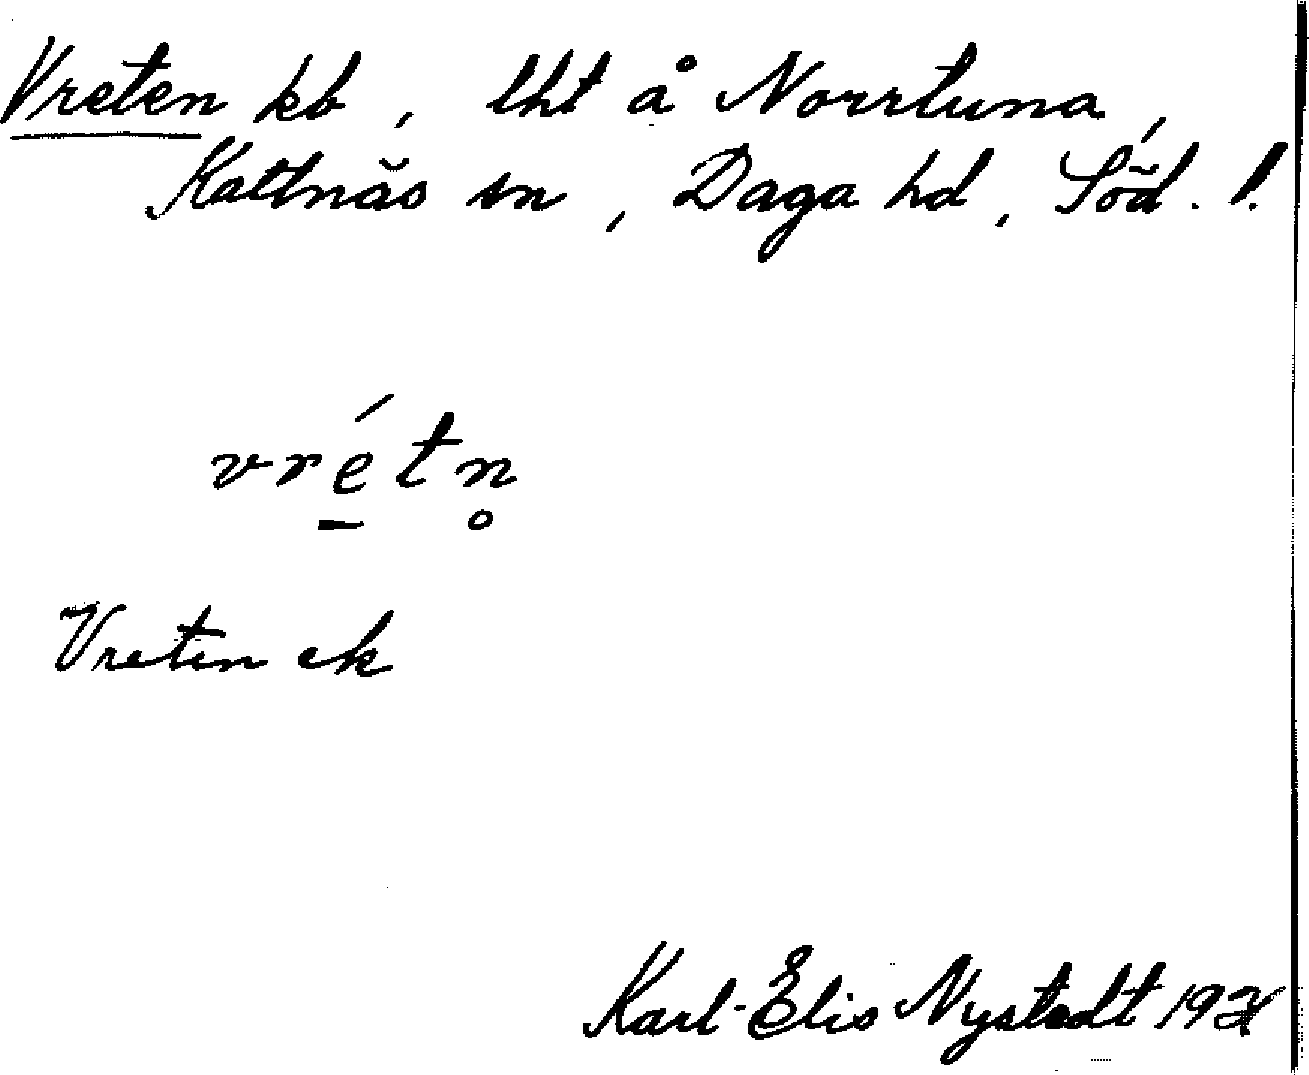 Vreten kb, lht å Norrtuna,
Kattnäs sn, Daga hd, Söd. l.
vrétn̥
Vreten ek
Karl-Elis Nystedt